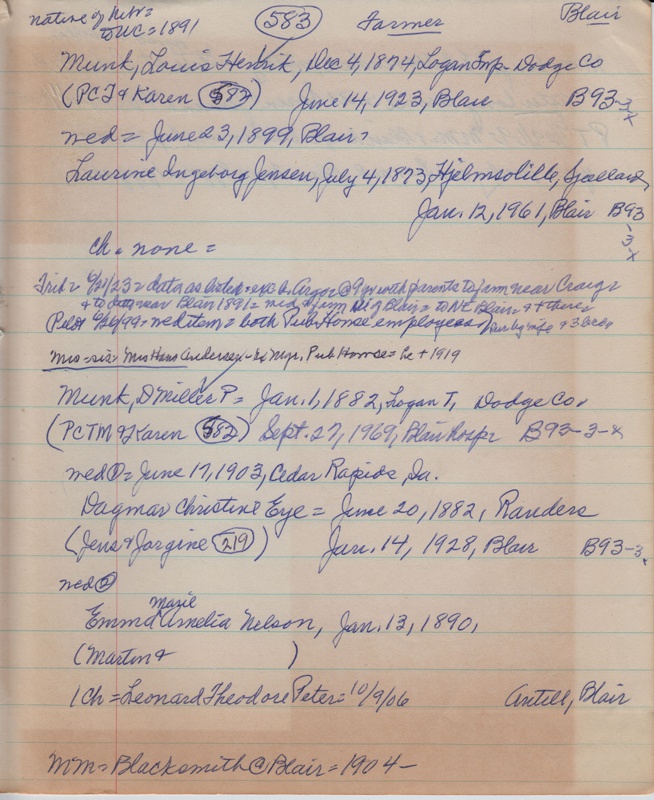 native of Nebr =
to WC = 1891
583
Farmer
Blair
Munk, Louis Henrik, Dec 4, 1874, Logan Twp. Dodge Co
(PCT & Karen 582) June 14, 1923, Blair B93-3-x
wed = June 23, 1899, Blair?
Laurine Ingeborg Jensen, July 4, 1873, Hjelmsolille, Sjaelland,
Jan. 12, 1961, Blair B93-3-x
ch = none =
Trib = 6/21/23 = data as listed - exc b. @ 9 yr with parents to farm near Craig &
+ to near Blair 1891 = wed = farm of Blair = to NE Blair = + there =
Pilot 6/26/99 = wed item = both Pub House employees / Sur by wife & 3 bros
Mrs = sis = Mrs Hans Andersen = Mgr. Pub House = 1919
Munk, D Miller P = Jan. 1, 1882, Logan T, Dodge Co.
(PCTM & Karen 582) Sept. 27, 1969, Blair Hosp. B93-3-x
wed ① = June 17, 1903, Cedar Rapids, Ia.
Dagmar Christine Eye = June 20, 1882, Randers
(Jens & Jorgine 219) Jan. 14, 1928, Blair B93-3.
wed ②
Marie
Emma Amelia Nelson, Jan. 13, 1890,
(Martin & )
1 Ch = Leonard Theodore Peter = 10/9/06 Blair
MM = Blacksmith @ Blair = 1904 -